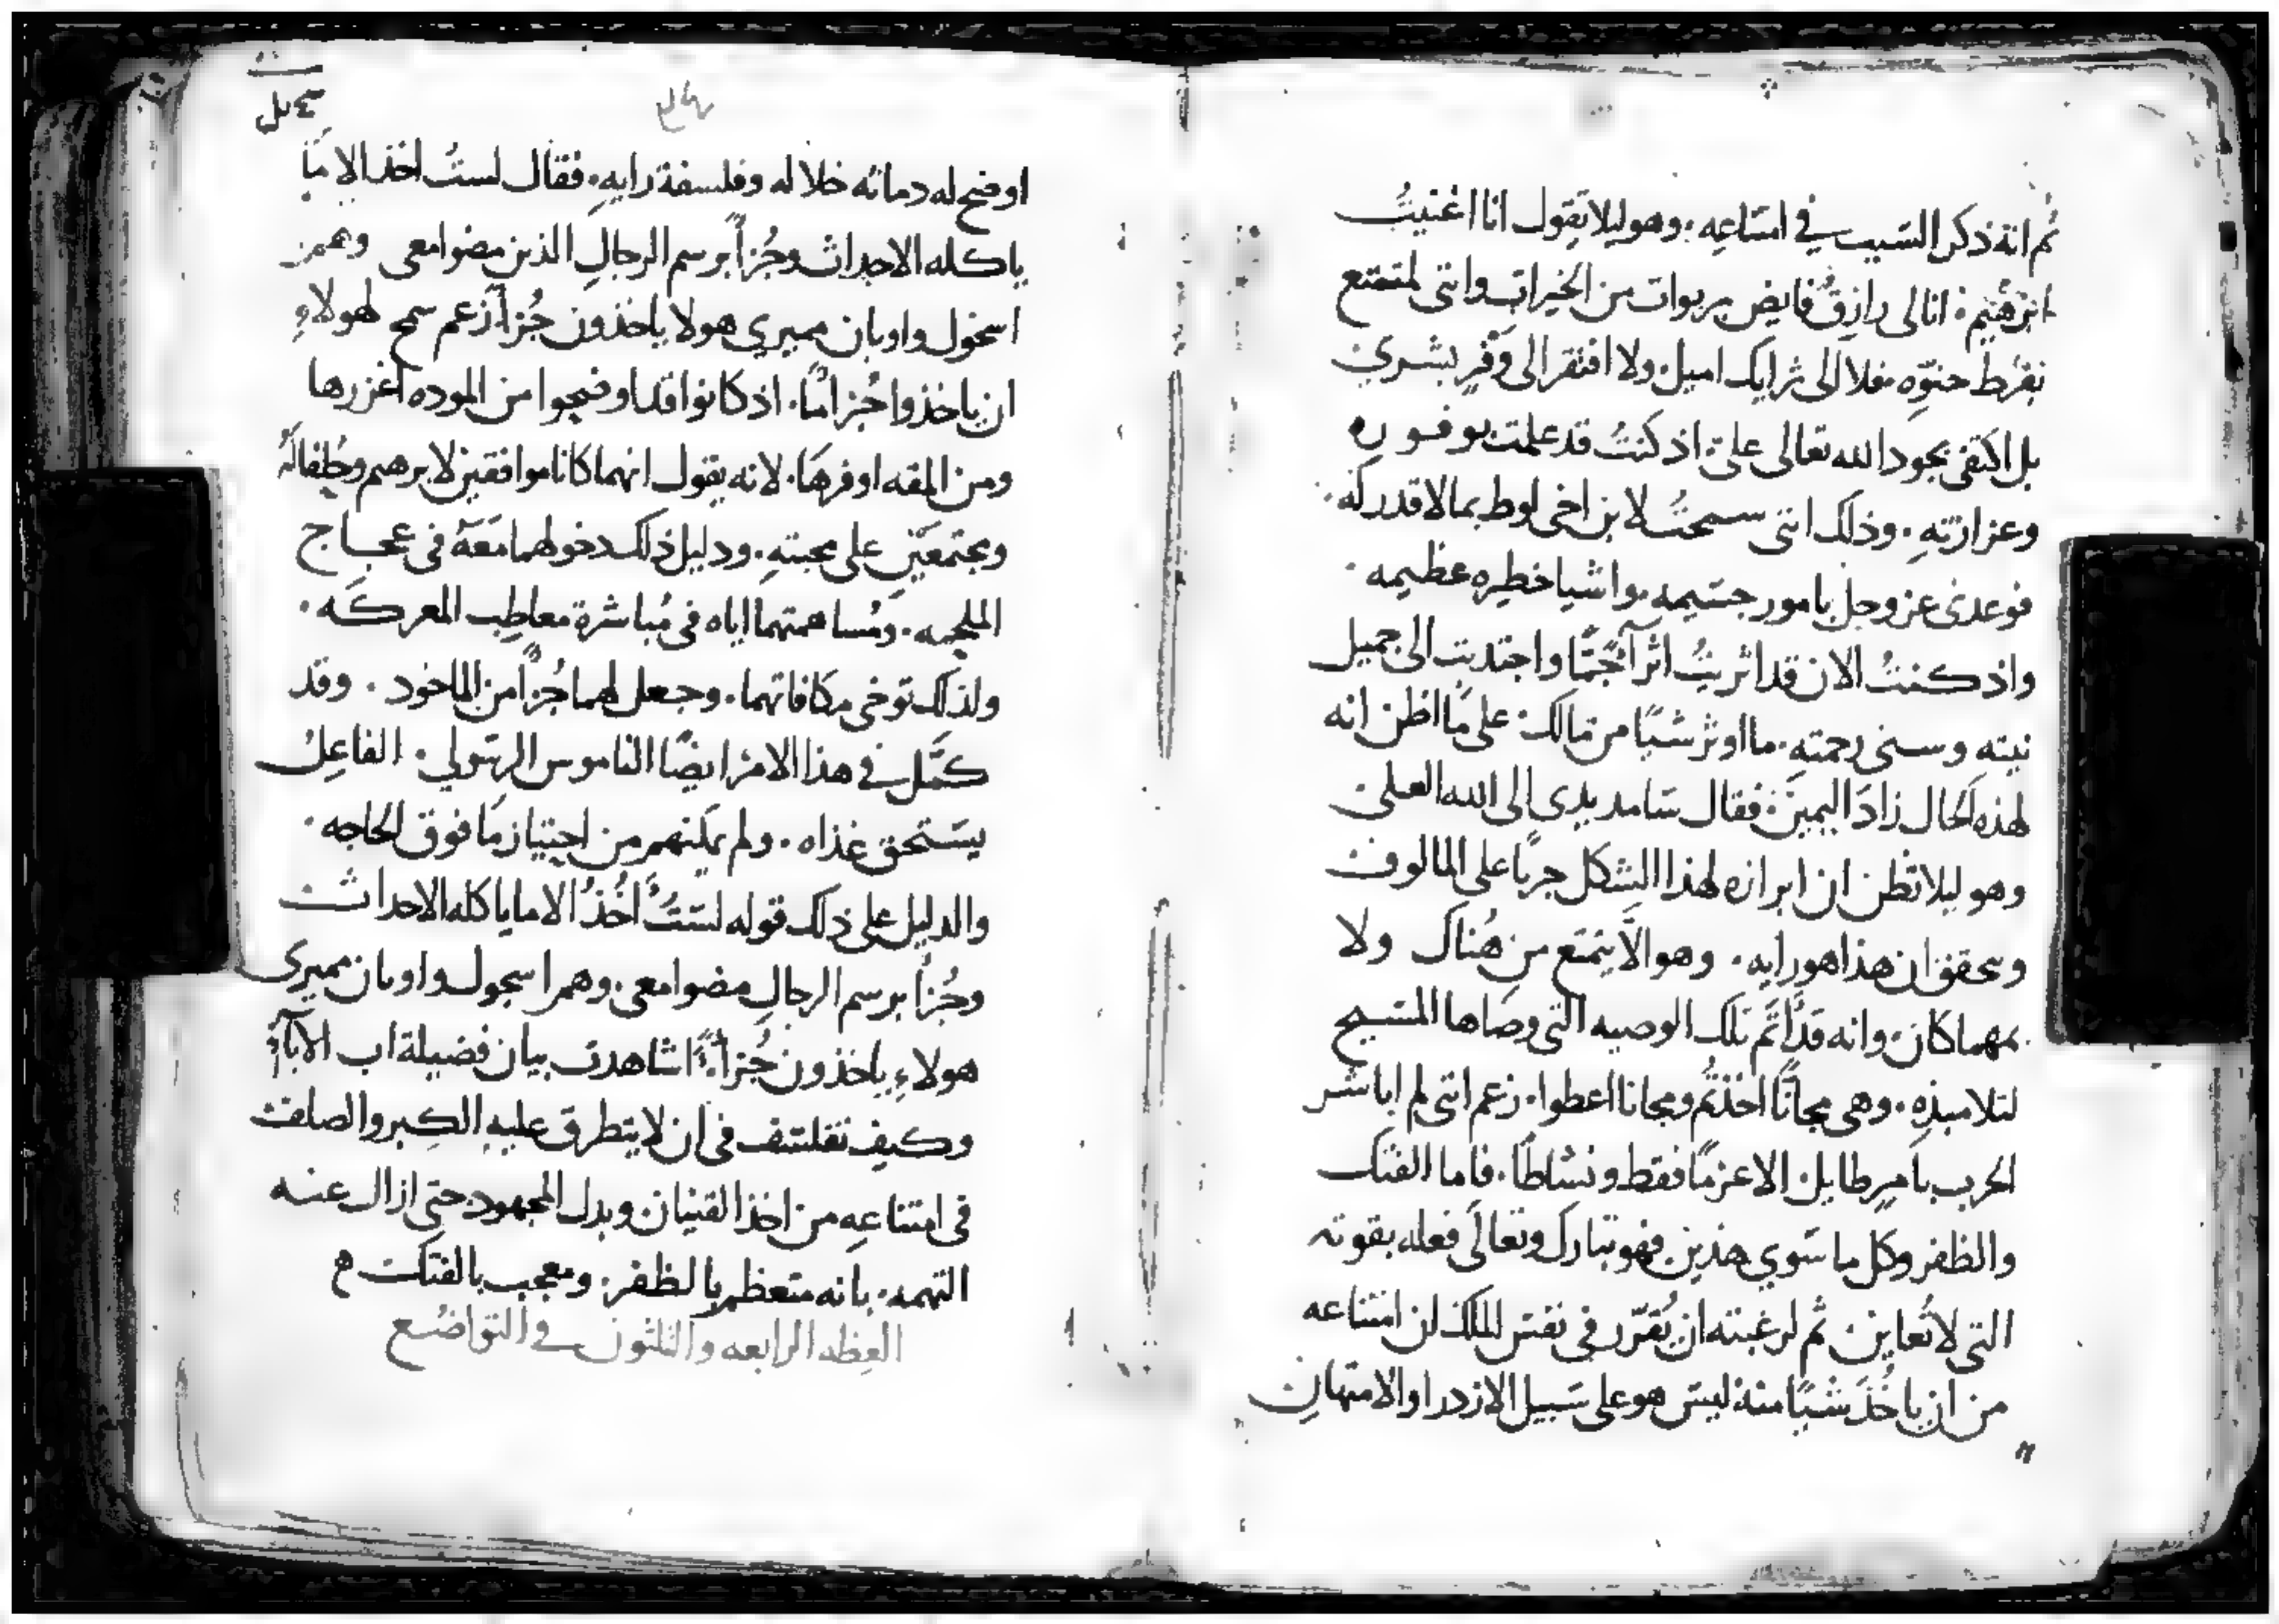 ثم انه ذكر السبب في امتناعه. وهو ليلا يقول انا اغنيتُ
ابرهيم. انا لي رازقٌ فايض بربوات من الخيرات وانني لمتمتع
بفرط حنوّه فلا الى ثرايك اميل. ولا افتقر الى وَفْرٍ بشري
بل اكتفى بجود الله تعالى عليّ. اذ كنتُ قد علمت بوفوره
وعزازته. وذلك انني سمحتُ لابن اخي لوط بما لا قدر له.
فوعدني عز وجل بامور جسيمه واشيا خطيره عظيمه.
واذ كنتُ الان قد اثريتُ اثراً جمًّا واجتديت الى جميل
نيته وسنى رحمته. ما اوثر شيًا من مالك. على ما اظن انه
لهذه الحال زاد اليمين. فقال سامد يدي الى الله العلي
وهو ليلا تظن ان ابرازه لهذا الشكل جريًا على المالوف
وتحقق ان هذا هو رايه. وهو الّا يتمتع من هُناك ولا
بمهما كان. وانه قد اتم تلك الوصيه التي وصاها المسيح
لتلاميذه. وهي مجانًا اخذتُم ومجانا اعطوا. زعم انني لم اباشر
الحرب بامرٍ طايل الا عزمًا فقط ونشاطًا. فاما الفتك
والظفر وكل ما سوي هذين فهو تبارك وتعالى فعله بقوته
التي لا تُعاين ثم لرغبته ان يُقرّر في نفس الملك ان امتناعه
من ان ياخُذ شيًا منه ليس هو على سبيل الازدرا والامتهان
اوضح له دماثه خلاله وفلسفة رايه. فقال لستُ اخذ الا ما
ياكله الاحداث وجُزاً برسم الرجال الذين مضوا معي وهم
اسخول واونان ممبري هولا ياخذون جُزاً زعم سمح لهولاءِ
ان ياخذوا جُزا ما. اذ كانوا قد اوضحوا من الموده اغزرها
ومن المقه اوفرها. لانه يقول انهما كانا موافقين لابرهم وحُلفا لهُ
ومجتمعَينِ على محبته. ودليل ذلك دخولهما مَعَهُ في عجاج
الملحمه. ومُساهمتهما اياه في مُباشرة معاطِب المعركه.
ولذلك توخى مكافاتهما. وجعل لهما جُزاً من الماخود. وقد
كمَّل في هذا الامرُ ايضًا الناموس الرسولي. الفاعِلُ
يستحق غذاه. ولم يمكنهم من اجتياز ما فوق الحاجه.
والدليل على ذلك قوله لستُ اَخُذُ الا ما ياكله الاحداث
وجُزاً برسم الرجال مضوا معي. وهم اسجول واونان ممبري
هولاءِ ياخذون جُزاً. اشاهدت بيان فضيلة اب الآباءُ
وكيف تفلسف في ان لا يتطرق عليه الكِبر والصلف
في امتناعه من اخذ القنيان وبدل المجهود حتى ازال عنه
التهمه. بانه متعظم بالظفر. ومعجب بالفتك
العظه الرابعه والثلثون في التواضُع